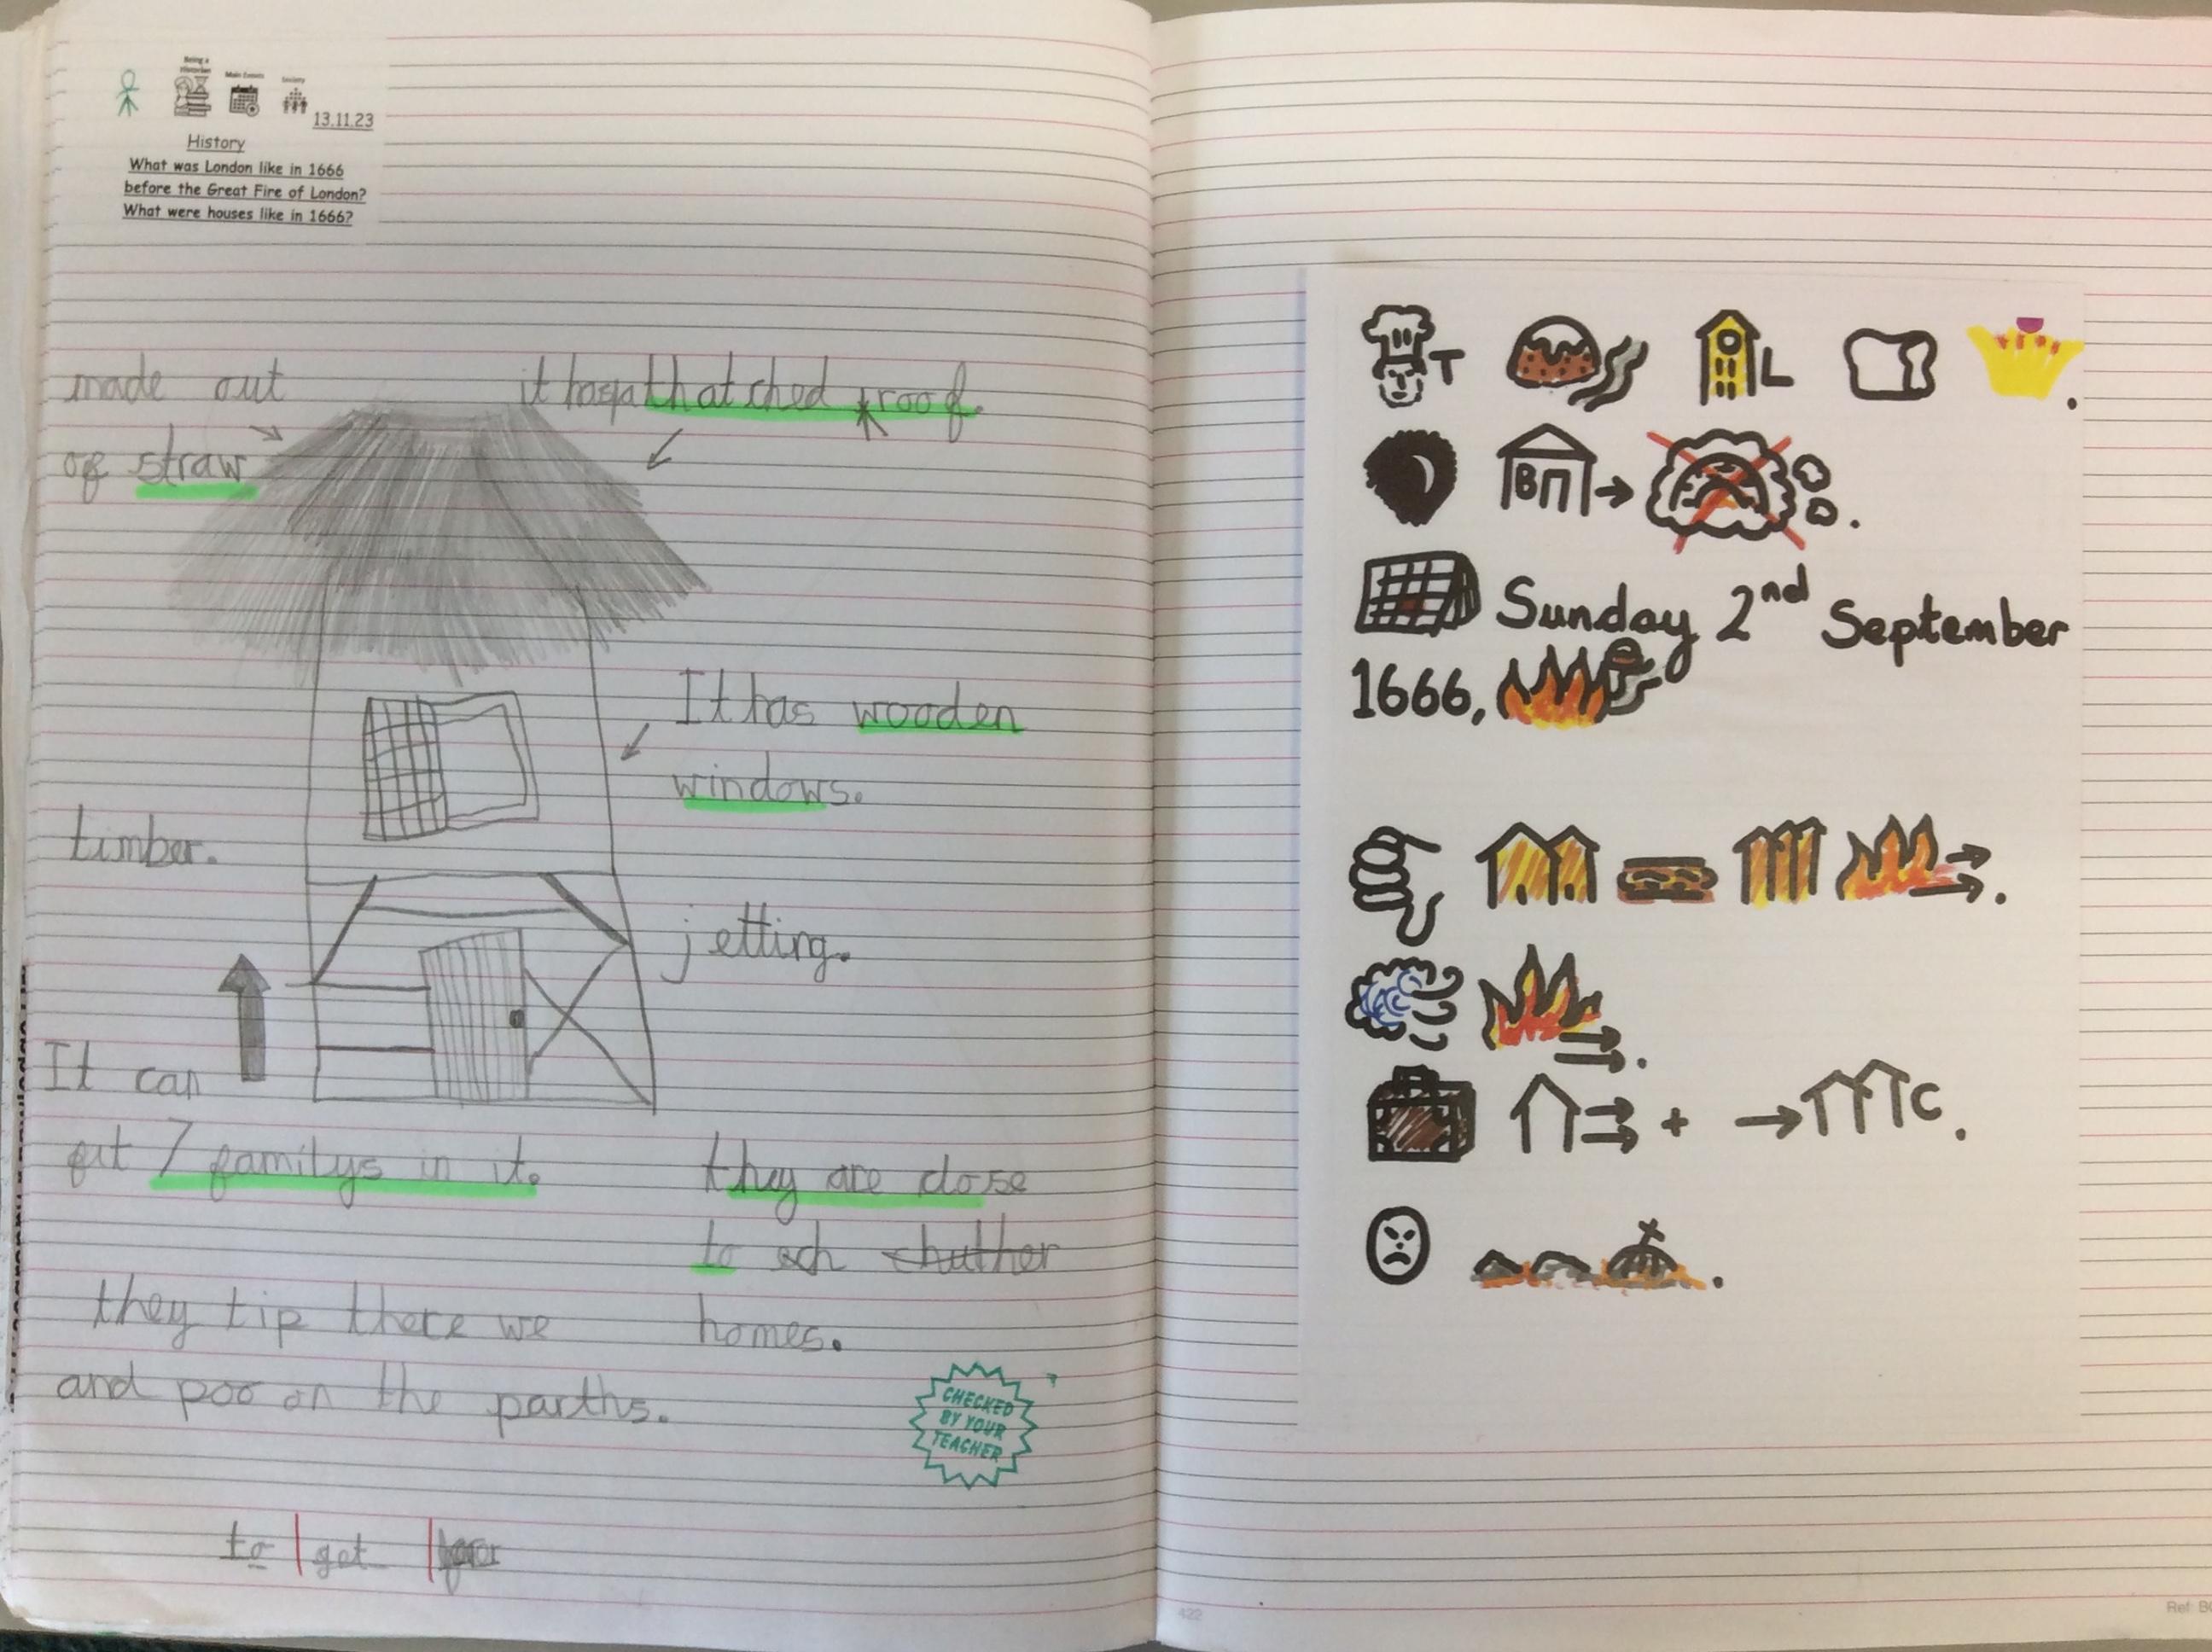 Being a
Historian
Main Events
Society
13.11.23
History
What was London like in 1666
before the Great Fire of London?
What were houses like in 1666?
made out
of straw
it has a thatched roof.
It has wooden
windows.
timber.
jetting.
It can
fit 7 familys in it.
they are close
to ech chuther
homes.
they tip there we
and poo on the parths.
CHECKED
BY YOUR
TEACHER
to get
422
T
L
B
Sunday 2nd September
1666,
+
C
Ref: